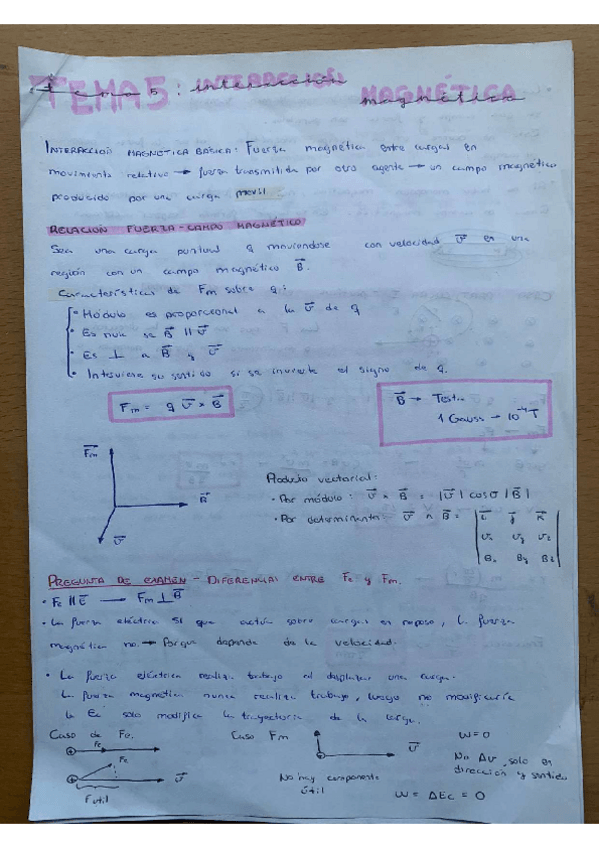 TEMA 5: INTERACCIÓN MAGNÉTICA
Tema 5: interacción magnética
INTERACCIÓN MAGNÉTICA BÁSICA: Fuerza magnética entre cargas en
movimiento relativo → fuerza transmitida por otro agente → un campo magnético
producido por una carga movil
RELACIÓN FUERZA-CAMPO MAGNÉTICO
Sea una carga puntual q moviendose con velocidad v⃗ en una
región con un campo magnético B⃗.
Características de Fm sobre q:
• Módulo es proporcional a la v⃗ de q
• Es nula si B⃗ || v⃗
• Es ⊥ a B⃗ y v⃗
• Interviene su sentido si se invierte el signo de q.
Fm = q v⃗ × B⃗
B⃗ → Tesla
1 Gauss → 10⁻⁴ T
F⃗m
B⃗
v⃗
Producto vectorial:
• Por módulo: v⃗ × B⃗ = |v⃗| cos σ |B⃗|
• Por determinante: v⃗ × B⃗ = | i⃗ j⃗ k⃗ |
vx vy vz
Bx By Bz
PREGUNTA DE EXAMEN - DIFERENCIAS ENTRE Fe y Fm.
• Fe || E⃗ → Fm ⊥ B⃗
• La fuerza eléctrica si que actúa sobre cargas en reposo, la fuerza
magnética no → Porque depende de la velocidad.
• La fuerza eléctrica realiza trabajo al desplazar una carga.
La fuerza magnetica nunca realiza trabajo, luego no modificaría
la Ec solo modifica la trayectoria de la carga.
Caso de Fe.
Fe
Fe
v⃗
F útil
Caso Fm
v⃗
No hay componente
útil
W=0
No Δv, solo en
dirección y sentido
W = ΔEc = 0